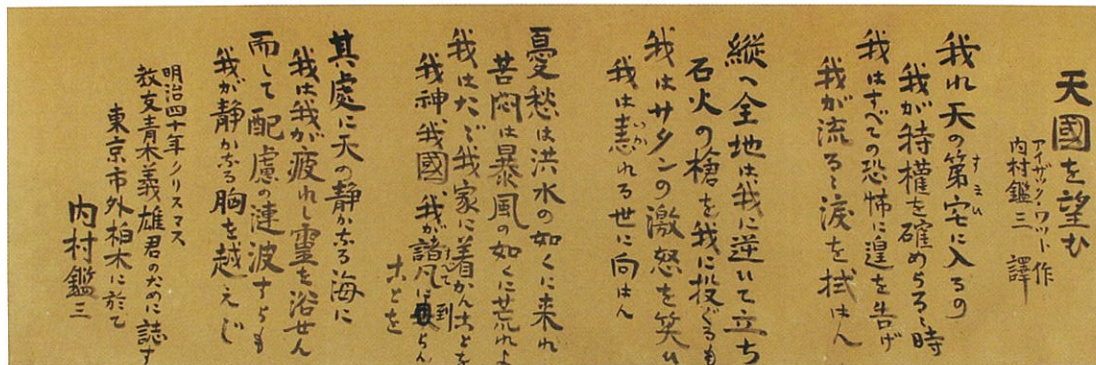 天國を望む
アイザック・ワット 作
内村鑑三 譯
我れ天の第宅に入るの
すまひ
我が特權を確めらるゝ時
我はすべての恐怖に遑を告げ
我が流るゝ涙を拭はん
縦へ全地は我に逆いて立ち
石火の槍を我に投ぐるも
我はサタンの激怒を笑ひ
我は恚れる世に向はん
いか
憂愁は洪水の如くに来れ
苦悶は暴風の如くに荒れよ
我はたゞ我家に着かんことを
我神、我國、我が諸凡に到らん
すべて
ことを
其處に天の静かなる海に
我は我が疲れし靈を浴せん
而して配慮の漣波すらも
我が静かなる胸を越えじ
明治四十年クリスマス
教友青木義雄君のために誌す
東京市外柏木に於て
内村鑑三